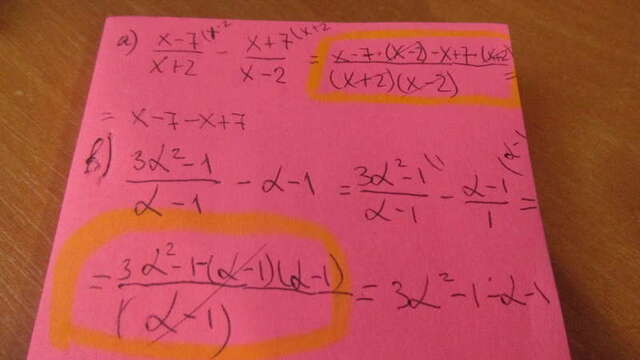 a) x-7 (x-2 / x+2 - x+7 (x+2 / x-2 = x-7·(x-2)-x+7·(x+2) / (x+2)(x-2) =
= x-7-x+7
b) 3α²-1 / α-1 - α-1 = 3α²-1 / α-1 - α-1 / 1 (α-1 =
= 3α²-1-(α-1)(α-1) / (α-1) = 3α²-1-α-1